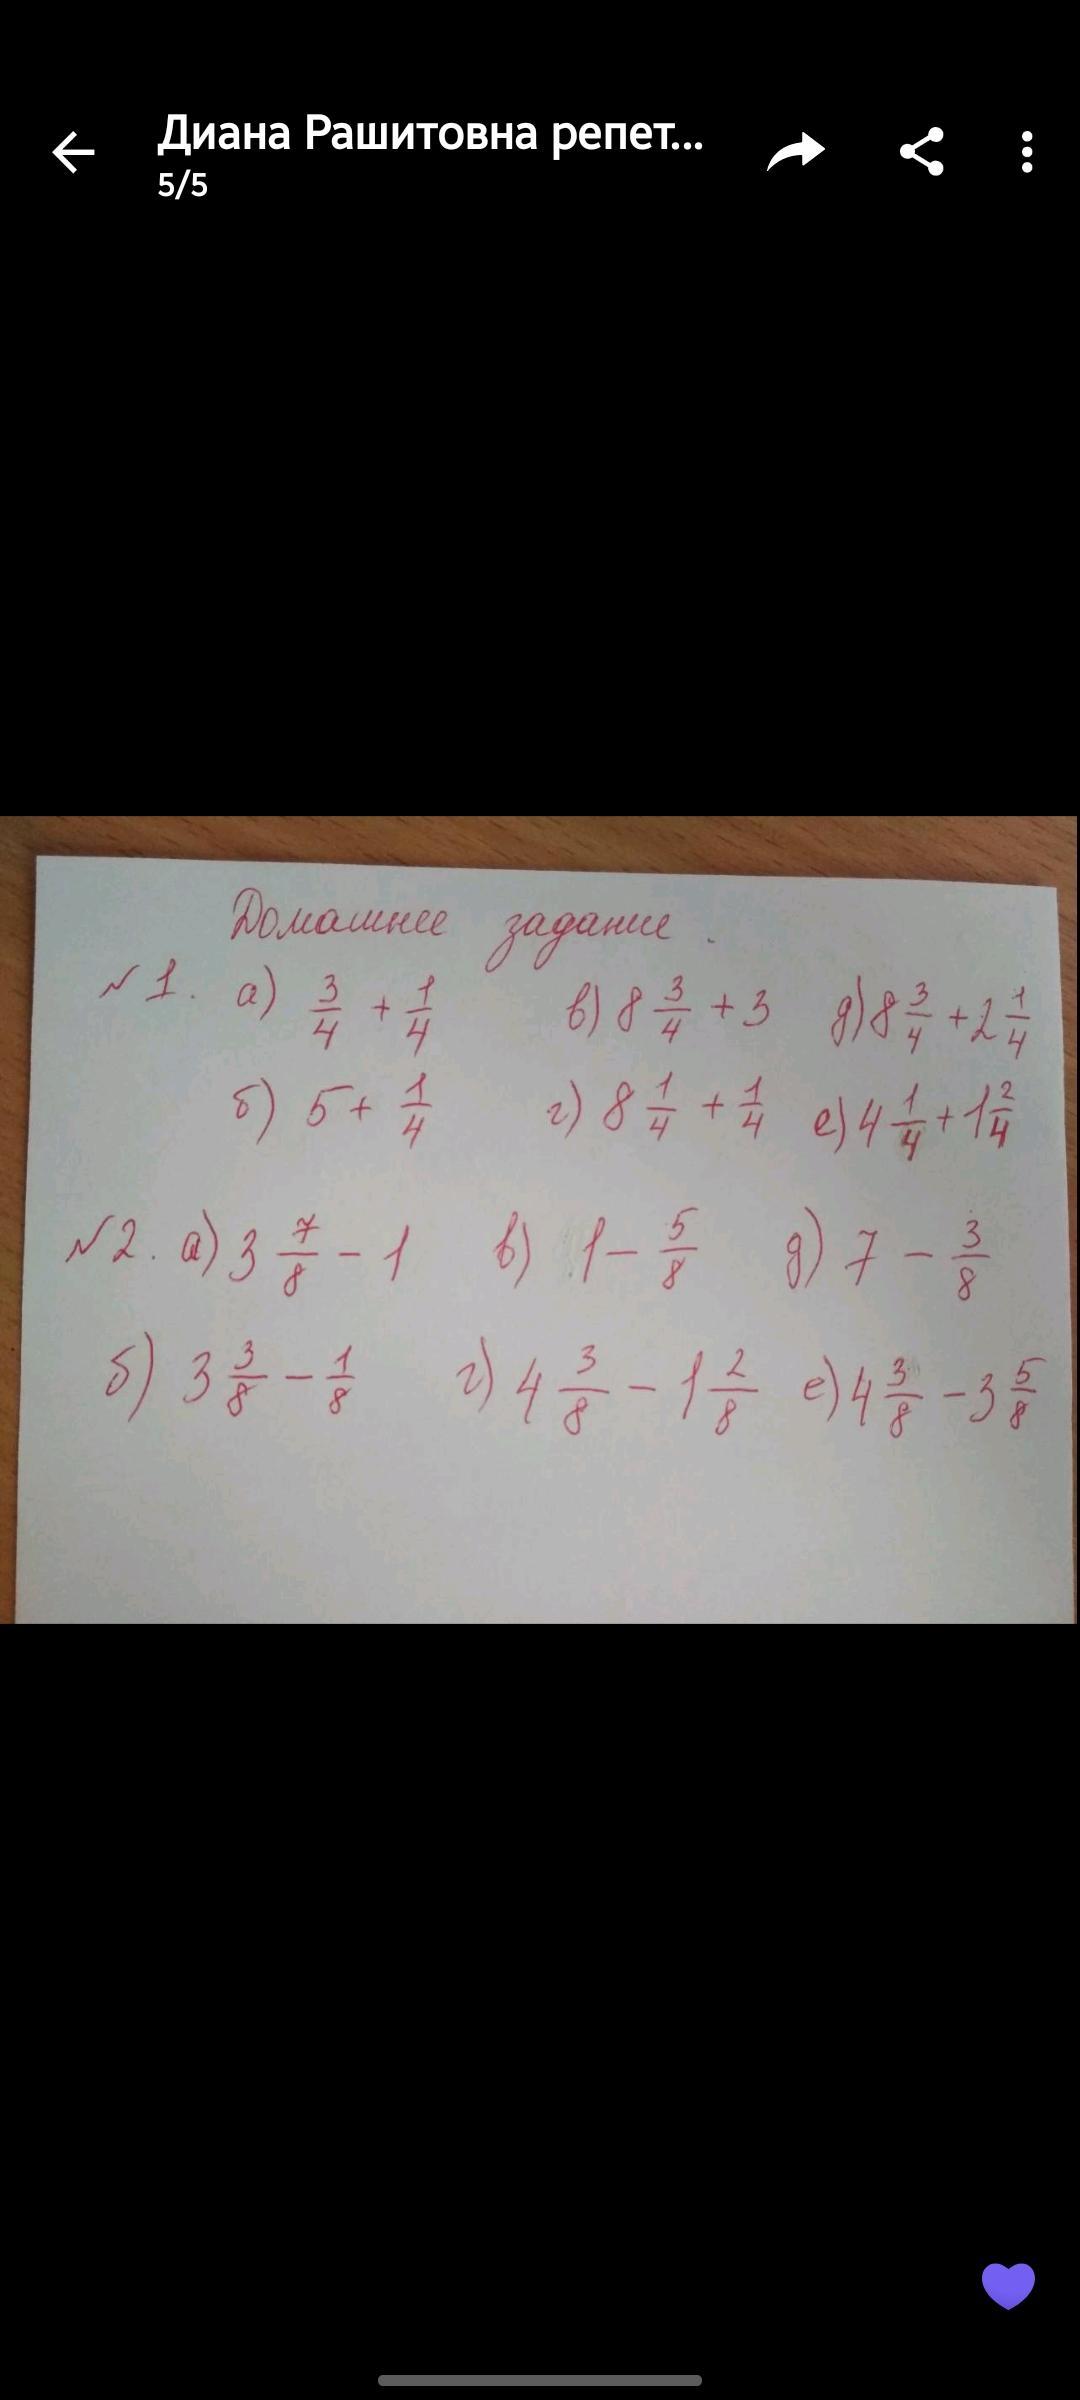 Диана Рашитовна репет...
5/5
Домашнее задание.
№1. а) 3/4 + 1/4 в) 8 3/4 + 3 д) 8 3/4 + 2 1/4
б) 5 + 1/4 г) 8 1/4 + 1/4 е) 4 1/4 + 1 2/4
№2. а) 3 7/8 - 1 в) 1 - 5/8 д) 7 - 3/8
б) 3 3/8 - 1/8 г) 4 3/8 - 1 2/8 е) 4 3/8 - 3 5/8